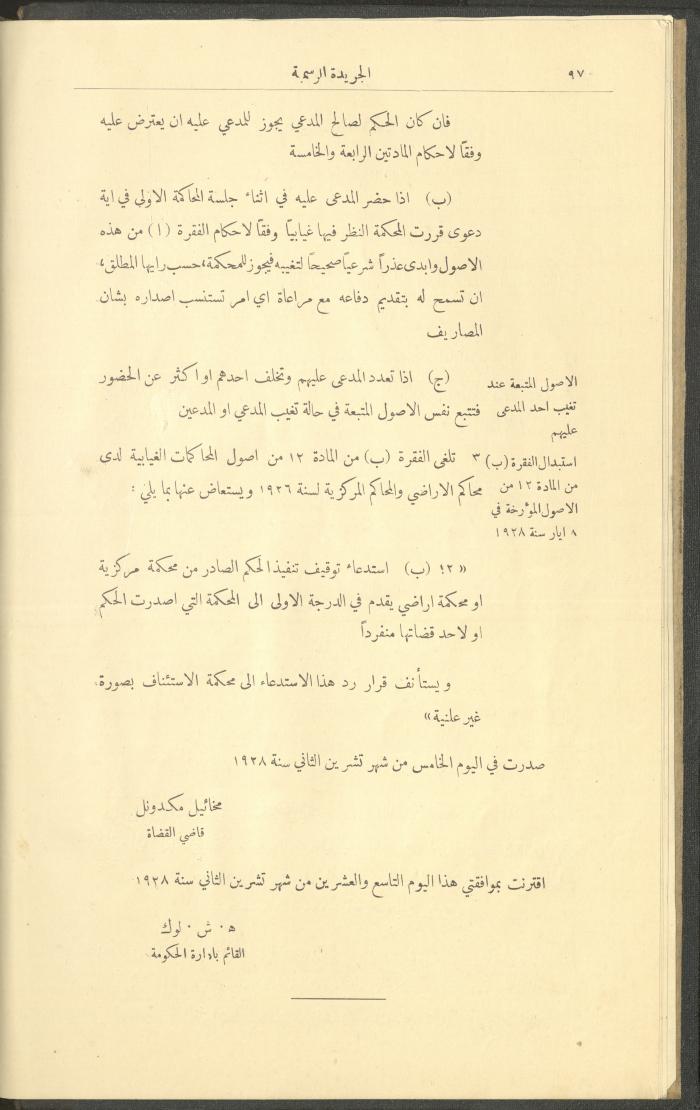 ٩٧
الجريدة الرسمية
فان كان الحكم لصالح المدعي يجوز للمدعي عليه ان يعترض عليه
وفقًا لاحكام المادتين الرابعة والخامسة
(ب) اذا حضر المدعى عليه في اثناء جلسة المحاكمة الاولى في اية
دعوى قررت المحكمة النظر فيها غيابيًا وفقًا لاحكام الفقرة (١) من هذه
الاصول وابدى عذراً شرعيًا صحيحًا لتغيبه فيجوز للمحكمة، حسب رايها المطلق،
ان تسمح له بتقديم دفاعه مع مراعاة اي امر تستنسب اصداره بشان
المصاريف
الاصول المتبعة عند
تغيب احد المدعى
عليهم
(ج) اذا تعدد المدعى عليهم وتخلف احدهم او اكثر عن الحضور
فتتبع نفس الاصول المتبعة في حالة تغيب المدعي او المدعين
استبدال الفقرة (ب)
من المادة ١٢ من
الاصول المؤرخة في
٨ ايار سنة ١٩٢٨
٣ تلغى الفقرة (ب) من المادة ١٢ من اصول المحاكمات الغيابية لدى
محاكم الاراضي والمحاكم المركزية لسنة ١٩٢٦ ويستعاض عنها بما يلي :
«١٢ (ب) استدعاء توقيف تنفيذ الحكم الصادر من محكمة مركزية
او محكمة اراضي يقدم في الدرجة الاولى الى المحكمة التي اصدرت الحكم
او لاحد قضاتها منفرداً
ويستأنف قرار رد هذا الاستدعاء الى محكمة الاستئناف بصورة
غير علنية»
صدرت في اليوم الخامس من شهر تشرين الثاني سنة ١٩٢٨
مخائيل مكدونل
قاضي القضاة
اقترنت بموافقتي هذا اليوم التاسع والعشرين من شهر تشرين الثاني سنة ١٩٢٨
ه. ش. لوك
القائم بادارة الحكومة